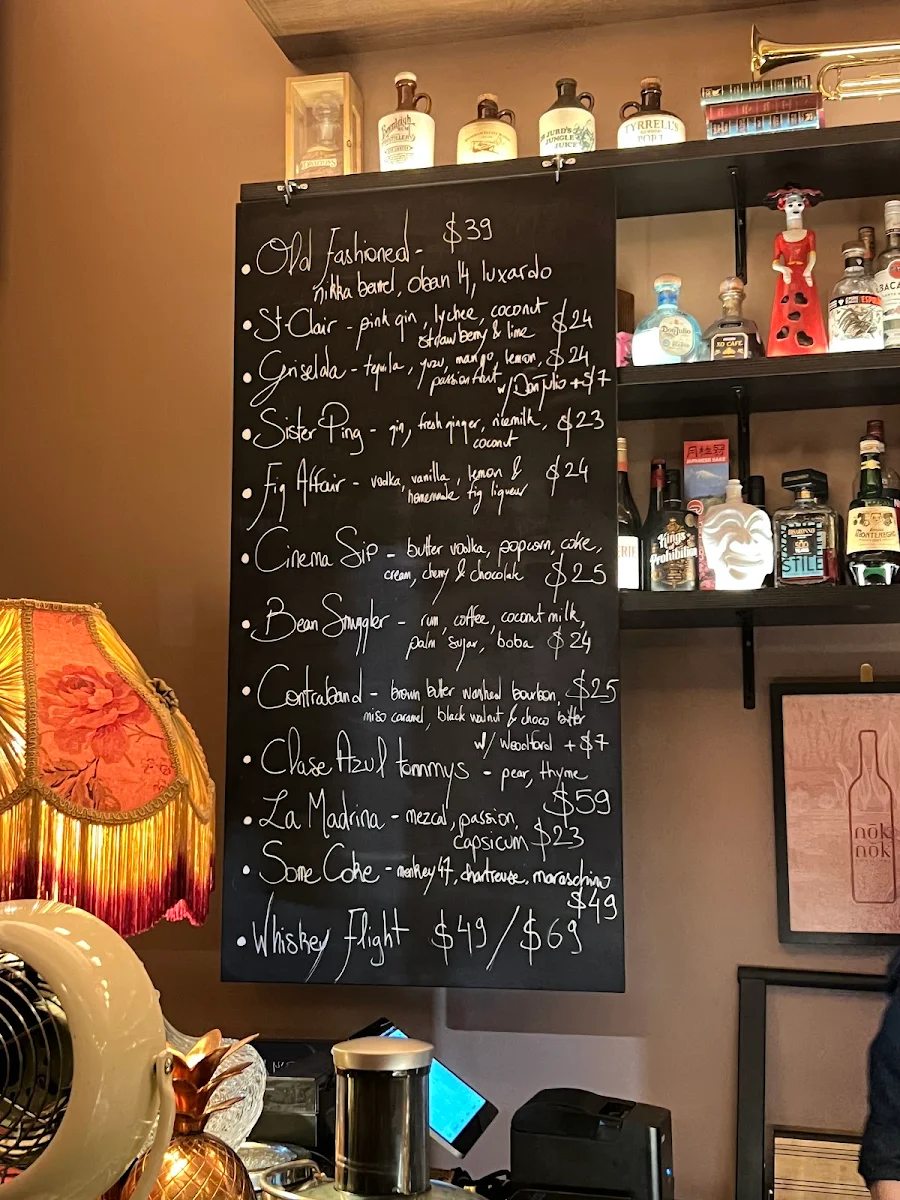 TYRRELL'S
JURD'S
JUNGLE
JUICE
Old Fashioned - $39
nikka barrel, oban 14, luxardo
St-Clair - pink gin, lychee, coconut $24
strawberry & lime
Griselda - tequila, yuzu, mango, lemon, $24
passionfruit w/ Don Julio + $7
Sister Ping - gin, fresh ginger, ricemilk, $23
coconut
Fig Affair - vodka, vanilla, lemon & $24
homemade fig liqueur
Cinema Sip - butter vodka, popcorn, coke,
cream, cherry & chocolate $25
Bean Smuggler - rum, coffee, coconut milk,
palm sugar, boba $24
Contraband - brown butter washed bourbon, $25
miso caramel, black walnut & choco bitter
w/ Woodford + $7
Clase Azul tommys - pear, thyme
$59
La Madrina - mezcal, passion,
capsicum $23
Some Coke - monkey 47, chartreuse, maraschino
$49
Whiskey Flight $49/$69
Don Julio
XO CAFE
ESPOL
BACA
JAPANESE SAKE
Kings
Prohibition
DISARONNO
STILE
MONTENEGRO
nōk
nŏk